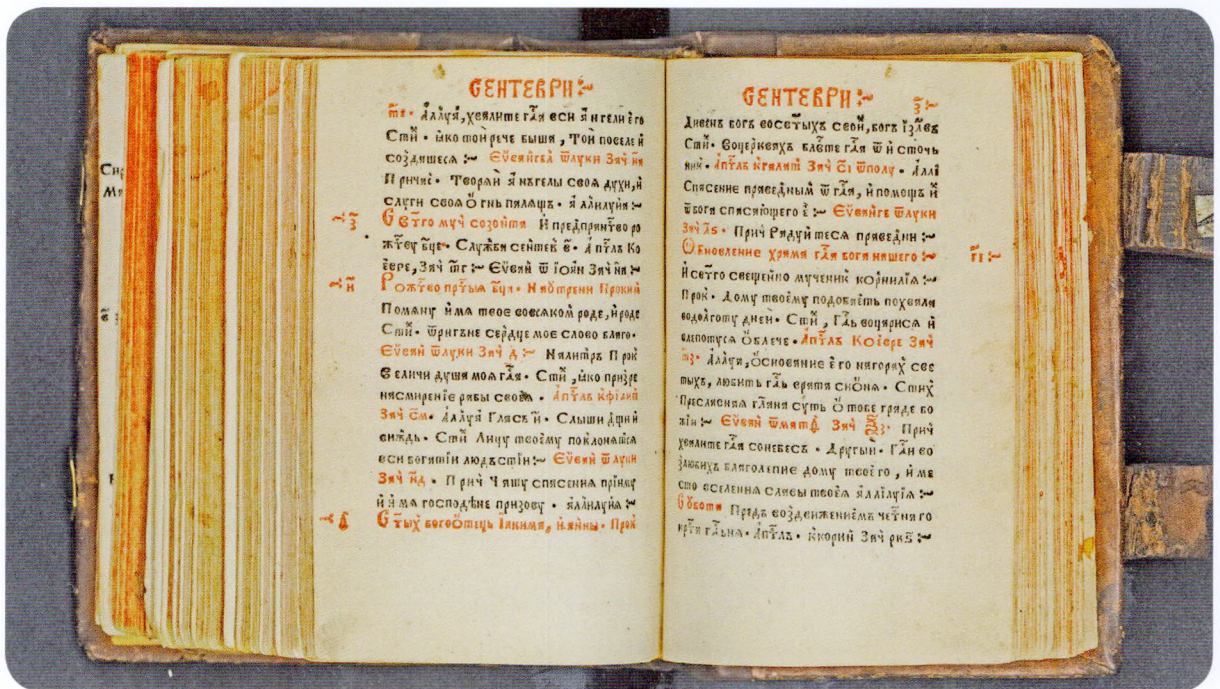 СЕНТЕВРИ :~
т҃в · Аллуꙗ, хвалите гл҃ꙗ вси а҆нгели е҆го
Сти҃ · ꙗко той рече быша, Той повеле и҆
создашесѧ :~ Єѵ҆ѡ́ѵглꙗ ѿ луки Зач҃
Причас҃ · Творѧй а҆нъгелы своѧ духи, и҆
слуги своѧ о҆гнь палѧщь · аллилуиа :~
з҃ С ве҃тго муч созонта И предпразнтво ро
жт҃ву бц҃е · Служба сентев в҃ · Апт҃лъ Ко
Зач҃ :~ Єѵ҆ѡ́ ѿ іѡа҆н Зач҃ :~
и҃ Рожт҃во прт҃ыѧ бц҃и · Наꙋтрени Проким
Помѧну и҆мѧ твое вовсѧком роде, и҆роде
Сти҃ · ѿригъне сердце мое слово благо ·
Єѵ҆ѡ́ ѿ луки Зач҃ д҃ :~ Налитръ Прок
Величи душа моѧ гд҃а · Сти҃, ꙗко призре
насмирение рабы своеѧ · Апт҃лъ кфилип
Зач҃ см҃ · Аллуꙗ Гласъ и҃ · Слыши дщи и҆
виждь · Сти҃ Лицу твоему поклонѧтсѧ
вси богатіи людъстіи :~ Єѵ҆ѡ́ ѿ луки
Зач҃ нд҃ · Прич Чашу спасениѧ пріиму
и҆ и҆мѧ господъне призову · алилуиа :~
С ты҃х богоѻтець Іакима, и҆ анны · Прок
СЕНТЕВРИ :~
Дивенъ богъ восвет҃ыхъ свои҆, богъ і҆зл҃въ
Сти҃ · Воцерквахъ блв҃те гд҃а ѿ и҆сточь
ник · Апт҃лъ кгалат Зач҃ с҃і ѿполу · Алли
Спасение праведныи҆м ѿ гд҃а, и҆ помощъ и҆
ѿбога спасаю҆щего е҆ :~ Єѵ҆ѡ́нге ѿ луки
Зач҃ лѕ҃ · Прич Радуйтесѧ праведни :~
Обновление храма гд҃а бога нашего :~ г҃і :~
И свет҃го свещенно мученик корнилїа :~
Прок · Дому твоему подобаетъ похвала
водолготу дней · Сти҃, Гд҃ь воцарисѧ и҆
влепотусѧ о҆блече · Апт҃лъ Коіевре Зач҃
Аллуи, о҆снование е҆го нагорах све
тыхъ, любитъ гд҃ь врата сиѻнѧ · Стих҃
Преславнаѧ гл҃ана суть о҆тобе граде бо
жіи :~ Єѵ҆ѡ́ ѿ мат҃ѳ Зач҃ ѯ҃з · Прич
хвалите гд҃а сонебесъ · Другыи · Гд҃и во
злюбихъ благолепие дому твоего, и҆ ме
сто вселениѧ славы твоеѧ алилуіа :~
Субота Предъ воздвижениемъ четнаго
крта гд҃ьнѧ · Апт҃лъ · Ккорин Зач҃ рк҃ѕ :~